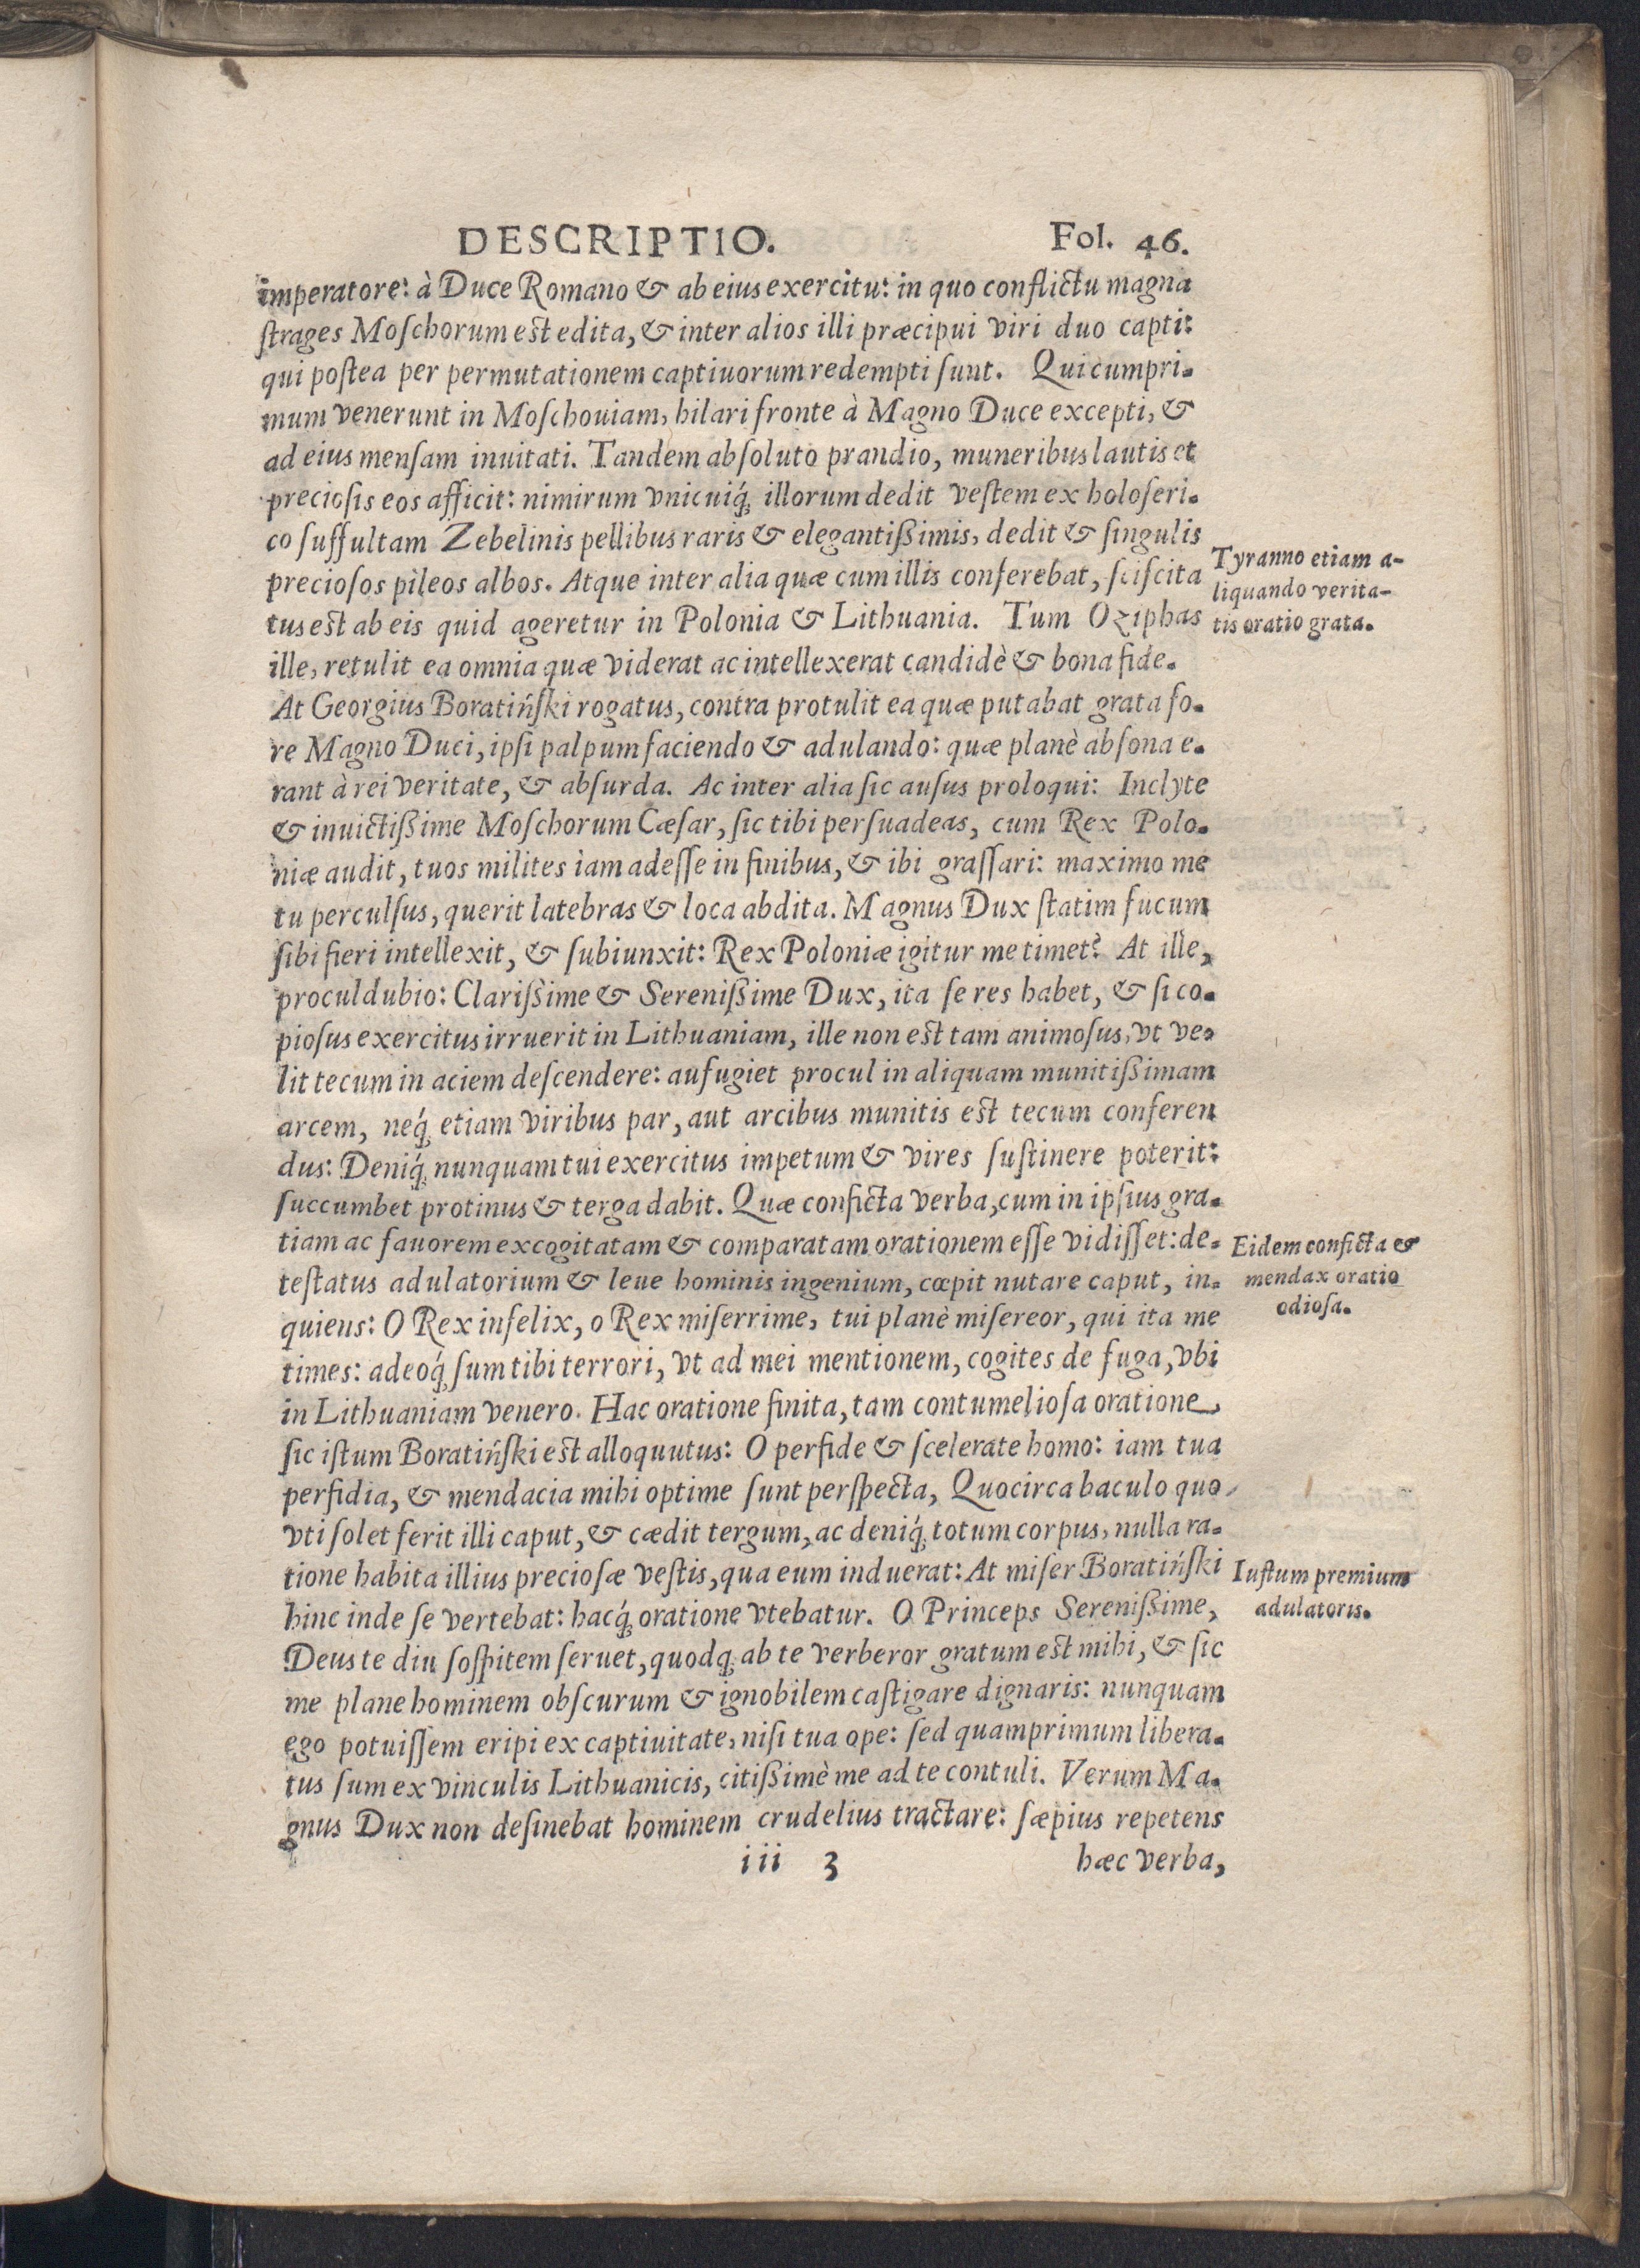 DESCRIPTIO. Fol. 46.
imperatore: à Duce Romano & ab eius exercitu: in quo conflictu magna
ſtrages Moſchorum est edita, & inter alios illi præcipui viri duo capti:
qui poſtea per permutationem captiuorum redempti ſunt. Qui cum pri-
mum venerunt in Moſchouiam, hilari fronte à Magno Duce excepti, &
ad eius menſam inuitati. Tandem abſoluto prandio, muneribus lautis et
precioſis eos afficit: nimirum vnicuiq́; illorum dedit veſtem ex holoſeri-
co ſuffultam Zebelinis pellibus raris & elegantißimis, dedit & ſingulis
precioſos pileos albos. Atque inter alia quæ cum illis conferebat, ſciſcita
tus est ab eis quid ageretur in Polonia & Lithuania. Tum Oziphas
ille, retulit ea omnia quæ viderat ac intellexerat candidè & bona fide.
At Georgius Boratińſki rogatus, contra protulit ea quæ putabat grata fo-
re Magno Duci, ipſi palpum faciendo & adulando: quæ planè abſona e-
rant à rei veritate, & abſurda. Ac inter alia ſic auſus proloqui: Inclyte
& inuictißime Moſchorum Cæſar, ſic tibi perſuadeas, cum Rex Polo-
niæ audit, tuos milites iam adeſſe in finibus, & ibi graſſari: maximo me
tu perculſus, querit latebras & loca abdita. Magnus Dux ſtatim fucum
ſibi fieri intellexit, & ſubiunxit: Rex Poloniæ igitur me timet? At ille,
proculdubio: Clarißime & Serenißime Dux, ita ſe res habet, & ſi co-
pioſus exercitus irruerit in Lithuaniam, ille non est tam animoſus, vt ve-
lit tecum in aciem deſcendere: aufugiet procul in aliquam munitißimam
arcem, neq́; etiam viribus par, aut arcibus munitis est tecum conferen
dus: Deniq́; nunquam tui exercitus impetum & vires ſuſtinere poterit:
ſuccumbet protinus & terga dabit. Quæ conficta verba, cum in ipſius gra-
tiam ac fauorem excogitatam & comparatam orationem eſſe vidiſſet: de-
teſtatus adulatorium & leue hominis ingenium, cœpit nutare caput, in-
quiens: O Rex infelix, o Rex miſerrime, tui planè miſereor, qui ita me
times: adeoq́; ſum tibi terrori, vt ad mei mentionem, cogites de fuga, vbi
in Lithuaniam venero. Hac oratione finita, tam contumelioſa oratione,
ſic iſtum Boratińſki est alloquutus: O perfide & ſcelerate homo: iam tua
perfidia, & mendacia mihi optime ſunt perſpecta, Quocirca baculo quo
vti ſolet ferit illi caput, & cædit tergum, ac deniq́; totum corpus, nulla ra-
tione habita illius precioſæ veſtis, qua eum induerat: At miſer Boratińſki
hinc inde ſe vertebat: hacq́; oratione vtebatur. O Princeps Serenißime,
Deus te diu ſoſpitem ſeruet, quodq; ab te verberor gratum est mihi, & ſic
me plane hominem obſcurum & ignobilem caſtigare dignaris: nunquam
ego potuiſſem eripi ex captiuitate, niſi tua ope: ſed quamprimum libera-
tus ſum ex vinculis Lithuanicis, citißimè me ad te contuli. Verum Ma-
gnus Dux non deſinebat hominem crudelius tractare: ſæpius repetens
iii 3 hæc verba,
Tyranno etiam a-
liquando verita-
tis oratio grata.
Eidem conficta &
mendax oratio
odioſa.
Iuſtum premium
adulatoris.